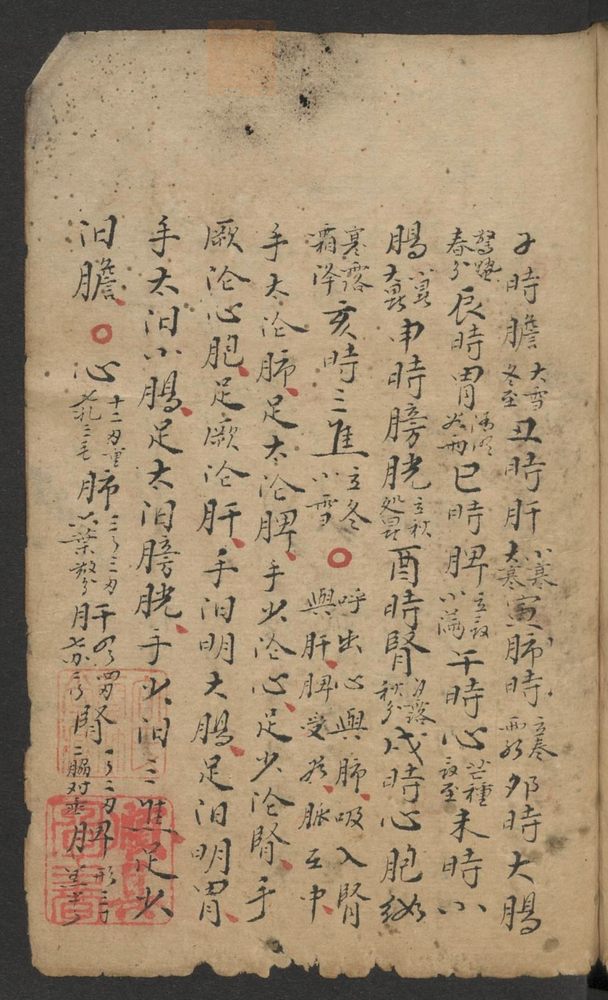 子時膽大雪冬至丑時肝小寒大寒寅肺時立春雨水卯時大腸
驚蟄春分辰時胃清明谷雨巳時脾立夏小滿午時心芒種夏至未時小
腸小暑大暑申時膀胱立秋処暑酉時腎白露秋分戌時心胞絡
寒露霜泽亥時三進立冬小雪○呼出心與肺吸入腎與肝脾受於脈在中
手太陰肺足太陰脾手少陰心足少陰腎手
厥陰心胞足厥陰肝手阳明大腸足阳明胃
手太阳小腸足太阳膀胱手少阳三進足少
阳膽○心十二刃重七孔三毛肺三斤三刃六葉肝腎一斤二刃二腸对垂脾